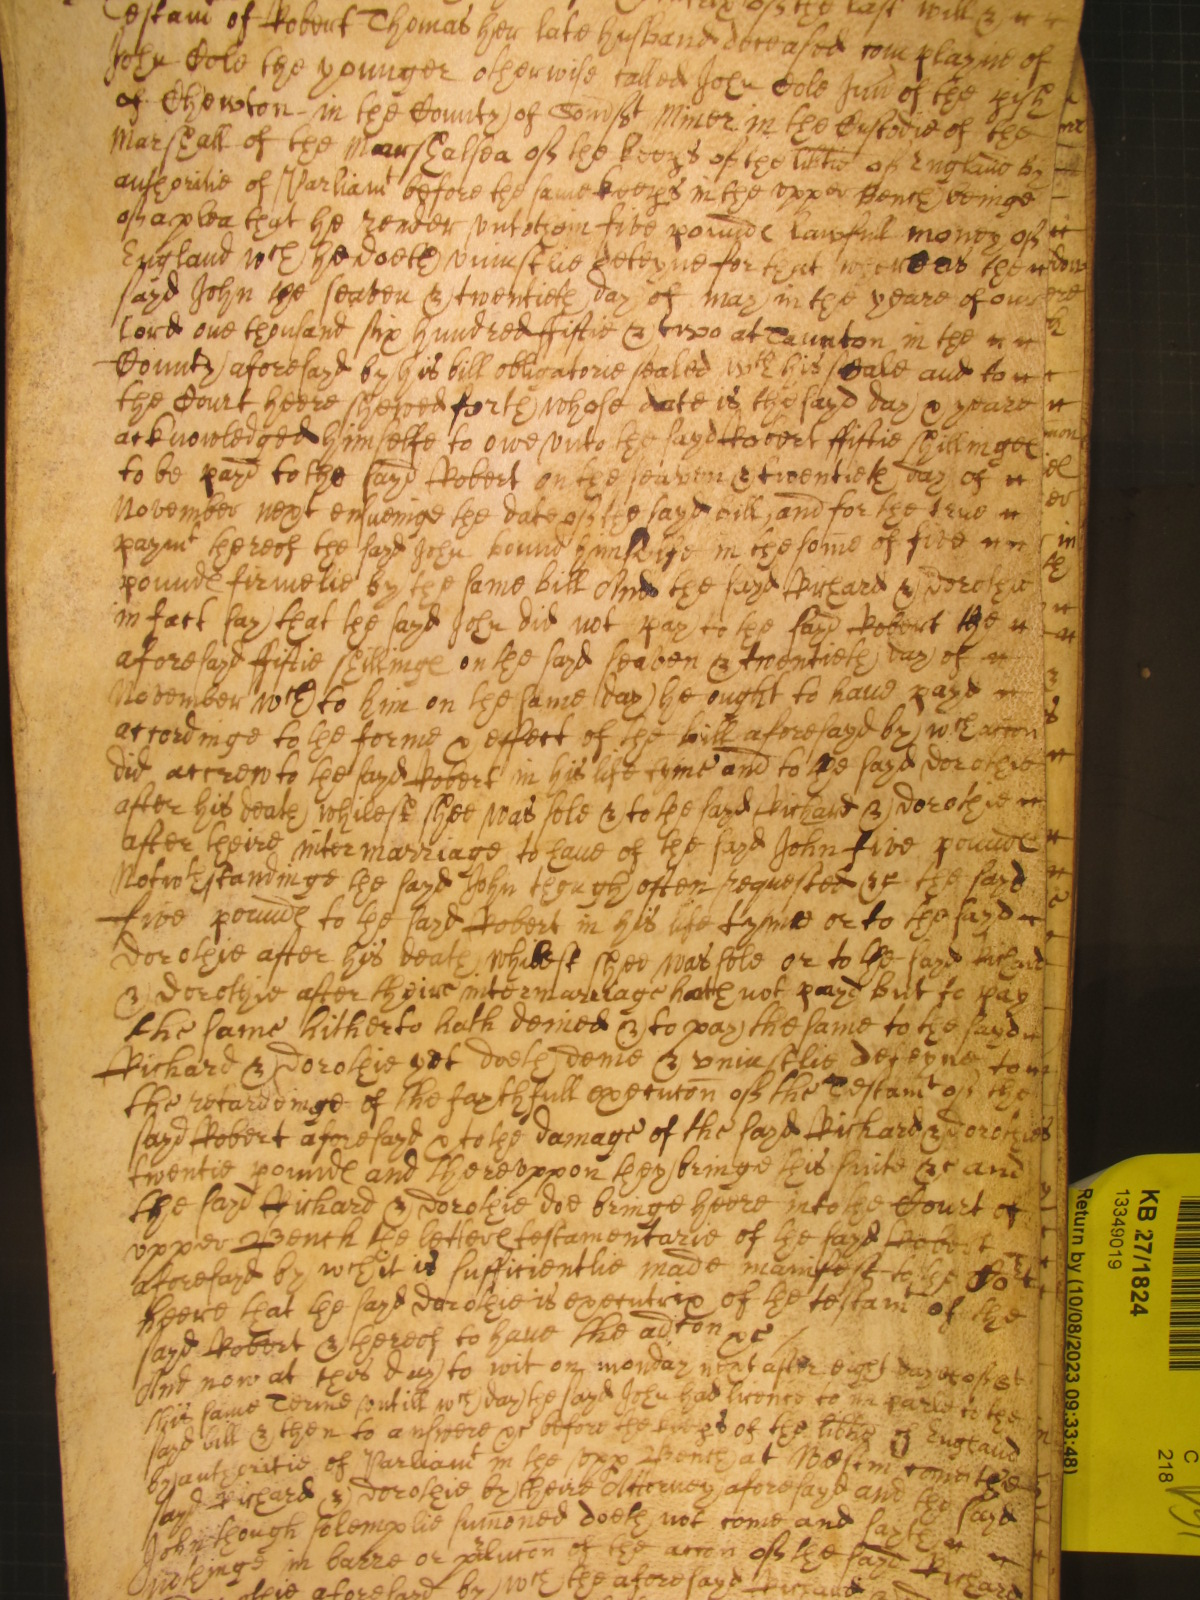 Testamt of Robert Thomas her late husband deceased complayne of
John Cole the younger otherwise called John Cole Junr of the pish
of Chewton in the County of Somst Miner in the Custodie of the
Marshall of the Marshalsea of the keeps of the libtie of England by
authoritie of Parliamt before the same keeps in the upper Bench beinge
of a plea that he render unto them five pounds lawfull money of
England wch he doeth uniustlie deteyne for that whereas the
sayd John the seaven & twentieth day of may in the yeare of our
lord one thousand six hundred fiftie & two at Taunton in the
County aforesayd by his bill obligatorie sealed wth his seale and to
the Court heere shewed forth whose date is the sayd day & yeare
acknowledged himselfe to owe unto the sayd Robert ffiftie shillinges
to be payd to the sayd Robert on the seaven & twentieth day of
November next ensueinge the date of the sayd bill, and for the true
paymt thereof the sayd John bound himselfe in the some of five
pounds firmelie by the same bill And the sayd Richard & Dorothie
in fact say that the sayd John did not pay to the sayd Robert the
aforesayd ffiftie shillings on the sayd seaven & twentieth day of
November wch to him on the same day he ought to have payd
accordinge to the forme & effect of the bill aforesayd by wch accon
did accrew to the sayd Robert in his life tyme and to the sayd Dorothie
after his death whilest shee was sole & to the sayd Richard & Dorothie
after theire intermarriage to have of the sayd John five pounds
Notwthstandinge the sayd John though often requested &c the sayd
five pounds to the sayd Robert in his life tyme or to the sayd
Dorothie after his death whilest shee was sole or to the sayd Richard
& Dorothie after theire intermarriage hath not payd but to pay
the same hitherto hath denied & to pay the same to the sayd
Richard & Dorothie yet doeth denie & uniustlie deteyne to
the retardeinge of the faythfull execucon of the Testamt of the
sayd Robert aforesayd & to the damage of the sayd Richard & Dorothies
twentie pounds and thereuppon they bringe this suite &c and
the sayd Richard & Dorothie doe bringe heere into the Court of
upper Bench the letters testamentarie of the sayd Robert
aforesayd by wch it is sufficientlie made manifest to the Court
heere that the sayd Dorothie is executrix of the testamt of the
sayd Robert & thereof to have the adcon &c
And now at this day to wit on monday next after eight dayes of
this same Terme untill wch day the sayd John had licence to imparle to the
sayd bill & then to answere &c before the keeps of the libtie of England
by authoritie of Parliamt in the upp Bench at Westm come the
sayd Richard & Dorothie by theire Attorney aforesayd and the sayd
John though solemplie sumoned doeth not come and sayth
nothinge in barre or pclucon of the accon of the sayd Richard
aforesayd by wch the aforesayd Richard
KB 27/1824
13349019
Return by (10/08/2023 09:33:48)
C
218